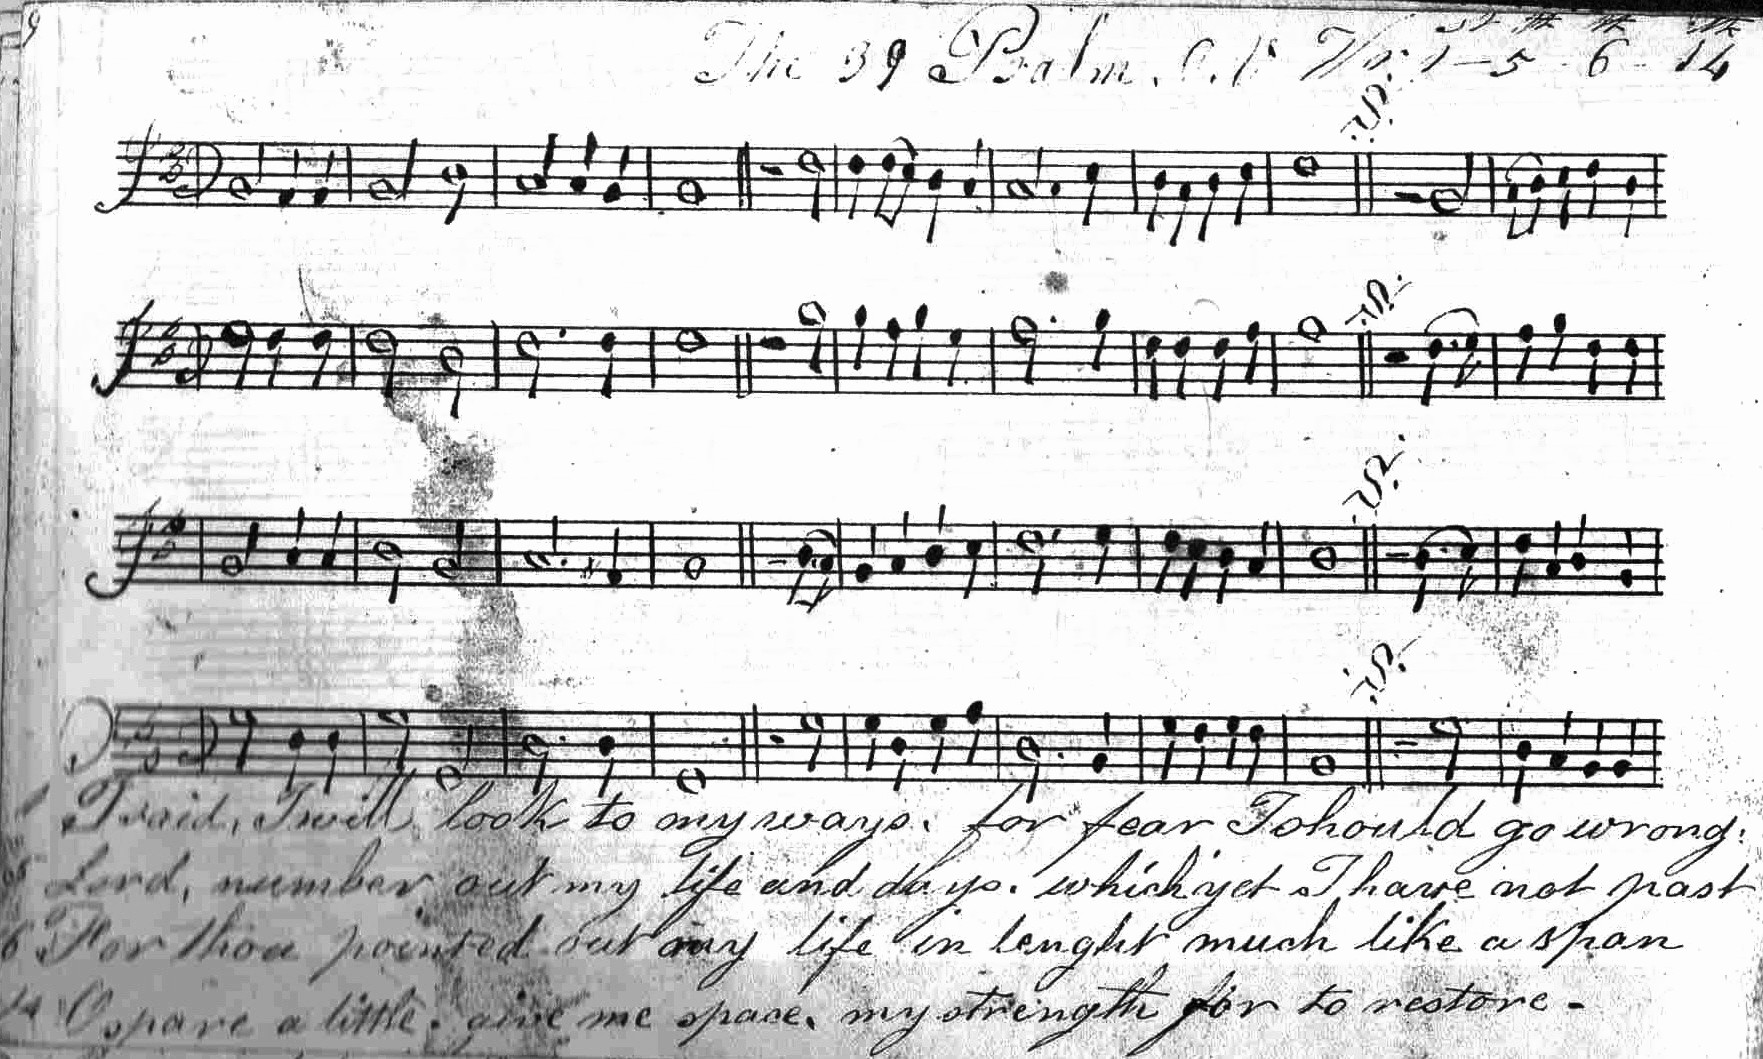 9
The 39 Psalm. C. V Vr. 1 - 5 - 6 - 14
1 I said, I will look to my ways. for fear I should go wrong.
5 Lord, number out my life and days. which yet I have not past
6 For thou pointed out my life in lenght much like a span
14 O spare a little. give me space. my strength for to restore -